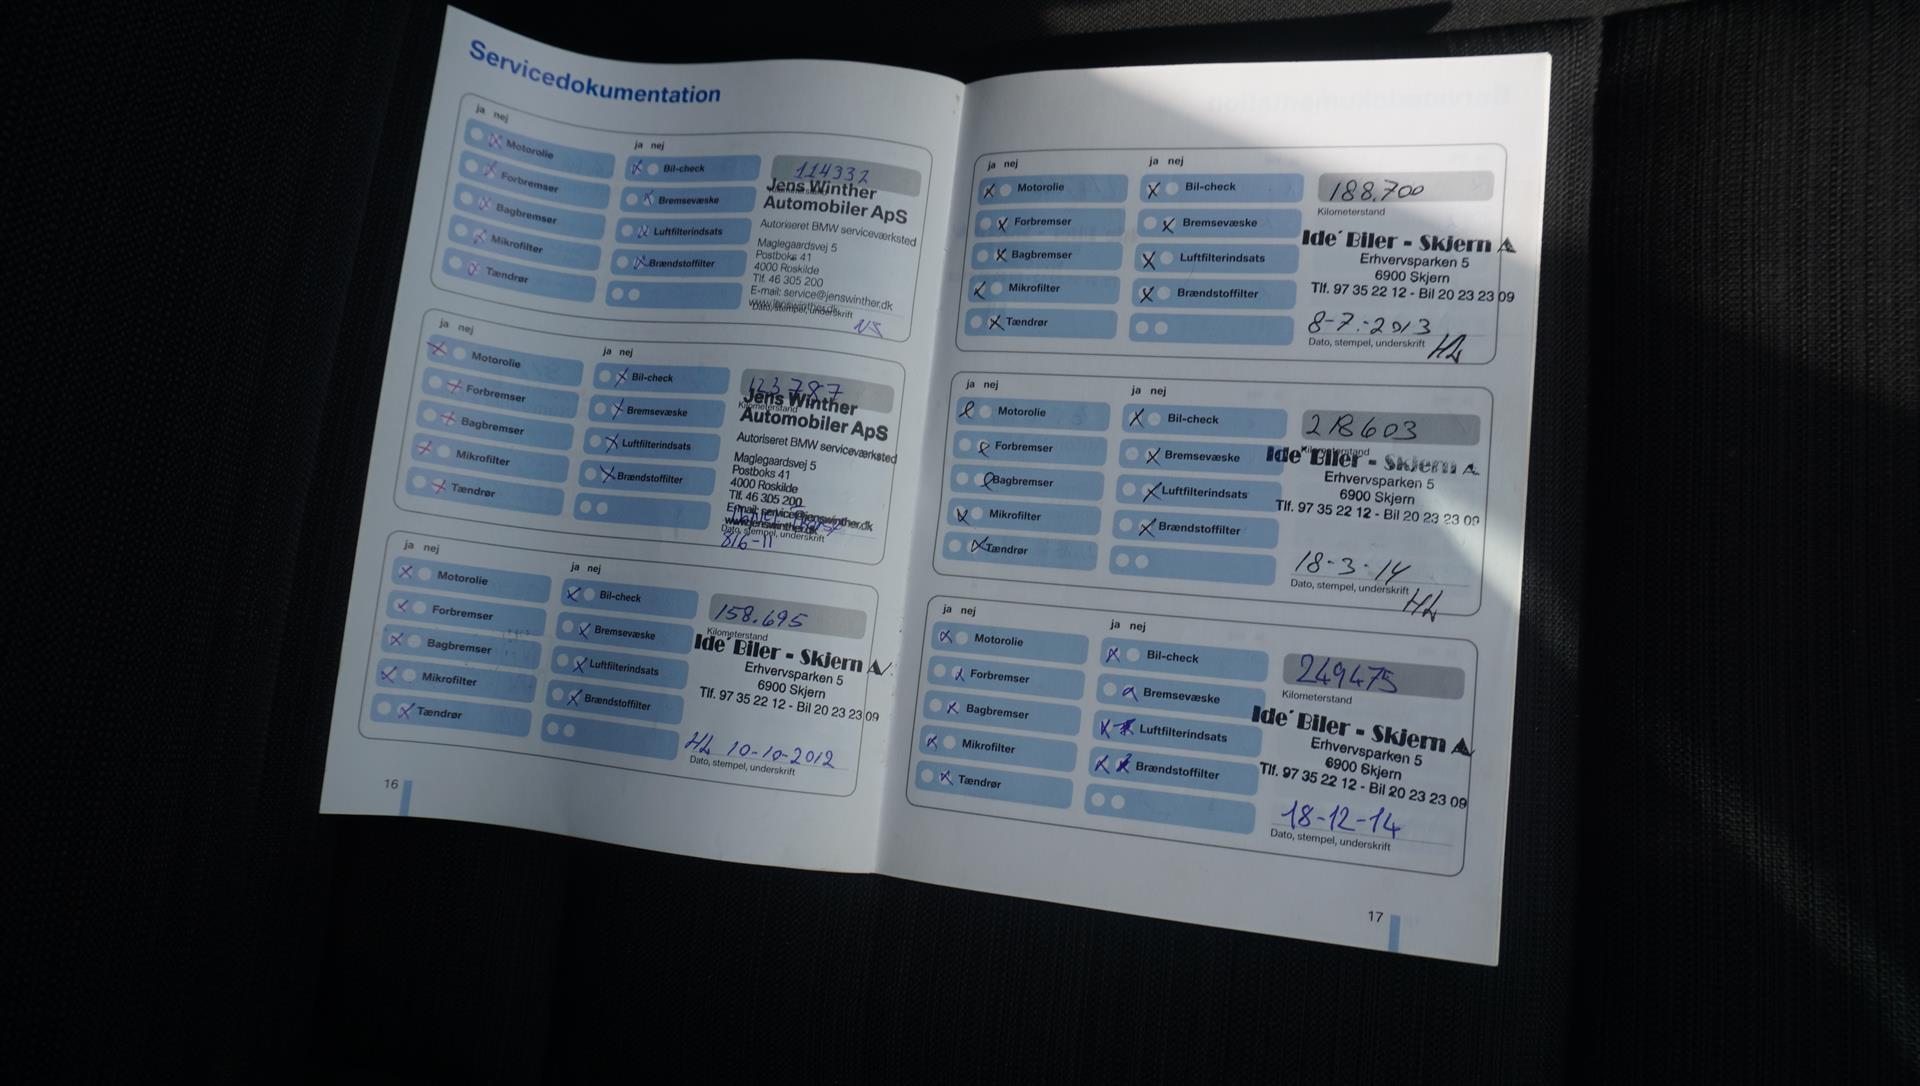 Servicedokumentation
ja nej
Motorolie
Forbremser
Bagbremser
Mikrofilter
Tændrør
ja nej
Bil-check
Bremsevæske
Luftfilterindsats
Brændstoffilter
114332
Jens Winther
Automobiler ApS
Autoriseret BMW serviceværksted
Maglegaardsvej 5
Postboks 41
4000 Roskilde
Tlf. 46 305 200
E-mail: service@jenswinther.dk
www.jenswinther.dk
Dato, stempel, underskrift
ja nej
Motorolie
Forbremser
Bagbremser
Mikrofilter
Tændrør
ja nej
Bil-check
Bremsevæske
Luftfilterindsats
Brændstoffilter
123787
Kilometerstand
Jens Winther
Automobiler ApS
Autoriseret BMW serviceværksted
Maglegaardsvej 5
Postboks 41
4000 Roskilde
Tlf. 46 305 200
E-mail: service@jenswinther.dk
www.jenswinther.dk
Dato, stempel, underskrift
8/6-11
ja nej
Motorolie
Forbremser
Bagbremser
Mikrofilter
Tændrør
ja nej
Bil-check
Bremsevæske
Luftfilterindsats
Brændstoffilter
158.695
Kilometerstand
Ide´Biler - Skjern A
Erhvervsparken 5
6900 Skjern
Tlf. 97 35 22 12 - Bil 20 23 23 09
HL 10-10-2012
Dato, stempel, underskrift
16
ja nej
Motorolie
Forbremser
Bagbremser
Mikrofilter
Tændrør
ja nej
Bil-check
Bremsevæske
Luftfilterindsats
Brændstoffilter
188.700
Kilometerstand
Ide´Biler - Skjern A
Erhvervsparken 5
6900 Skjern
Tlf. 97 35 22 12 - Bil 20 23 23 09
8-7.-2013
Dato, stempel, underskrift
HL
ja nej
Motorolie
Forbremser
Bagbremser
Mikrofilter
Tændrør
ja nej
Bil-check
Bremsevæske
Luftfilterindsats
Brændstoffilter
218603
Kilometerstand
Ide´Biler - Skjern A
Erhvervsparken 5
6900 Skjern
Tlf. 97 35 22 12 - Bil 20 23 23 09
18-3-14
Dato, stempel, underskrift
HL
ja nej
Motorolie
Forbremser
Bagbremser
Mikrofilter
Tændrør
ja nej
Bil-check
Bremsevæske
Luftfilterindsats
Brændstoffilter
249475
Kilometerstand
Ide´Biler - Skjern A
Erhvervsparken 5
6900 Skjern
Tlf. 97 35 22 12 - Bil 20 23 23 09
18-12-14
Dato, stempel, underskrift
17